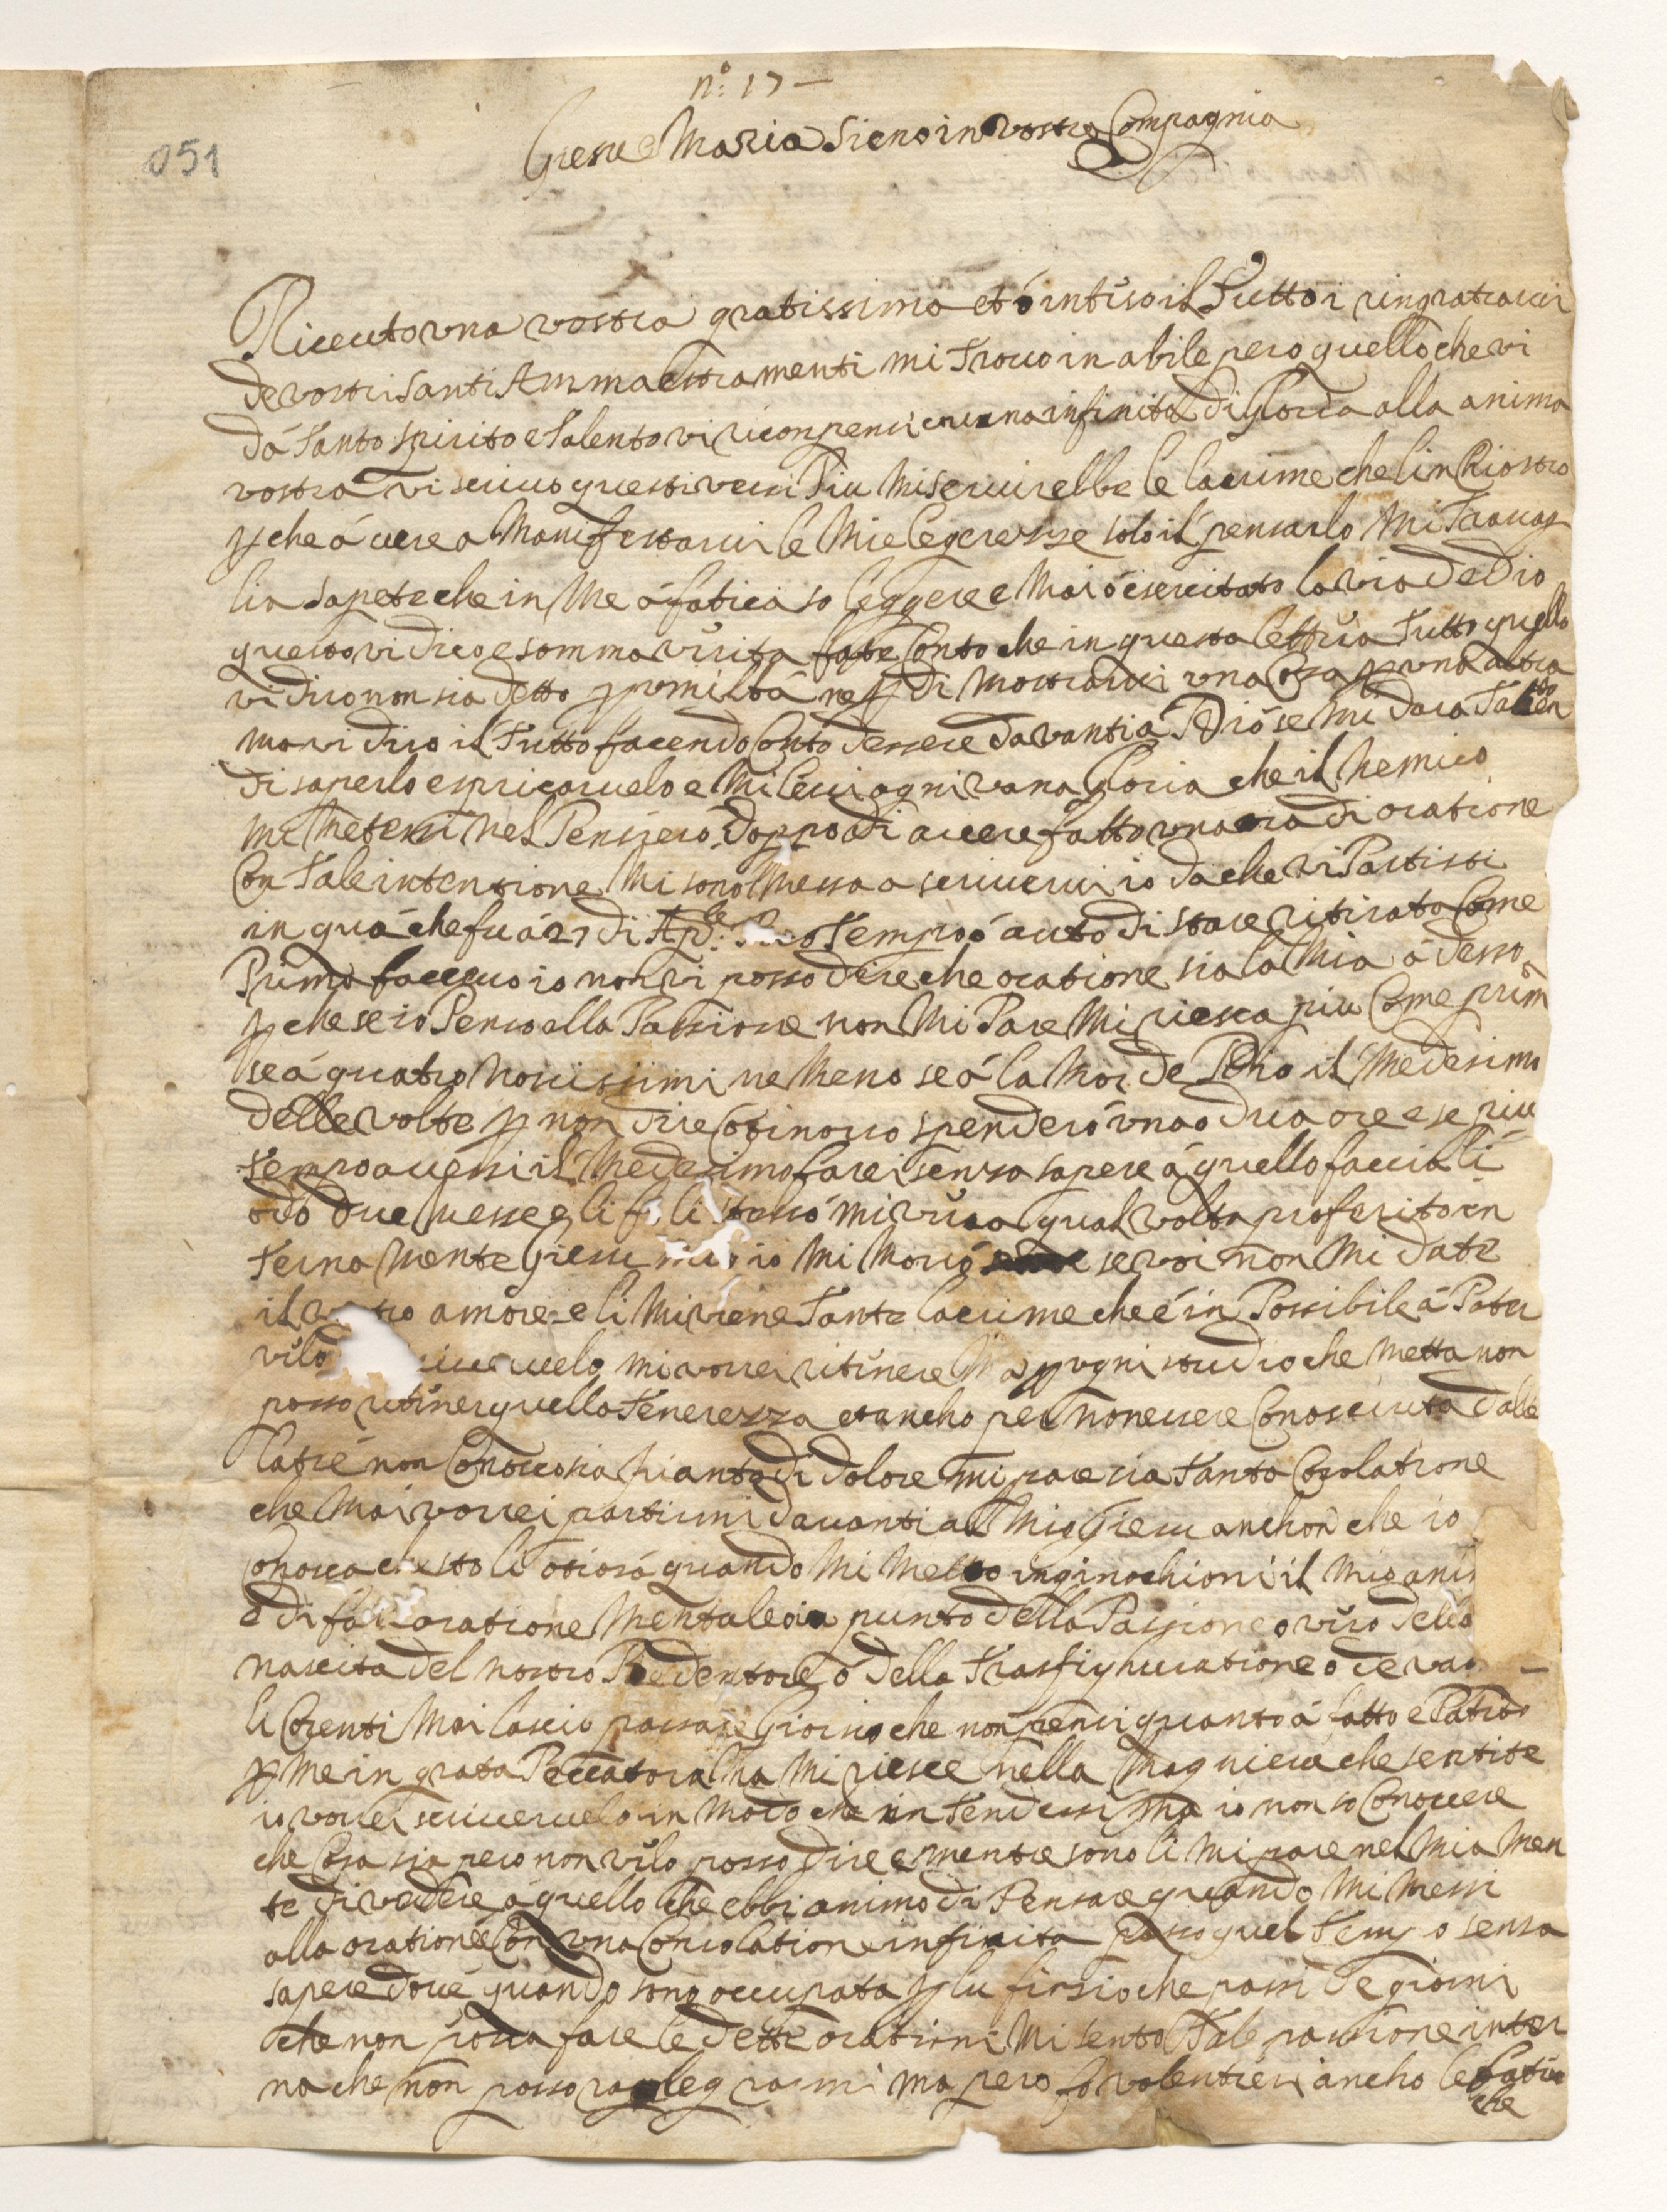 051
n.o 17 —
Giesu e Maria sieno in vostra Compagnia
Riceuto una vostra gratissima et ò intuso il Tutto i ringratiarvi
de vostri santi Ammaestramenti mi trovo in abile pero quello che vi
dà tanto spirito e talento vi riconpensi con una infinita di Gloria alla anima
vostra vi scrivo questi versi Piu mi servirebbe le lacrime che lin Chiostro
p che avere a Manifestarvi le Mie legerezze solo il pensarlo Mi Travag
lia sapete che in Me à fatica so leggere e Mai ò esercitato la via de Dio
questo vi dico e somma virita fate Conto che in questa lettura Tutto quello
vi dico non sia detto p umiltà ne p di Mostrarvi una Cosa p una altra
ma vi dico il Tutto facendo Conto dessere davanti à Dio se Mi dara Talen to
di saperlo espricarvelo e Mi levi ogni vana Gloria che il Nemico
mi Metessi nel Pensiero. doppo di avere fatto una ora di oratione
Con Tale intentione Mi sono Messa a scrivervi io da che vi Partisti
in quà che fu à 27 di Ap.le Tempo ò auto di stare ritirata Come
Prima facevo io non vi posso dire che oratione sia la Mia à desso
p che se io Penso alla Passione non Mi Pare Mi riesca piu Come prim a
se à quatro Novissimi ne Meno se à la Mor de Dio il Medesimo
delle volte p non dire Cotinovo spenderò una o dua ore e se piu
tempo avessi il Medesimo farei senza sapere à quello faccia li
odo due Messe e li li stesso mi via qual volta proferito in
terna Mente Giesu mio io Mi Moro se voi non Mi date
il vostro amore e li Mi viene Tante lacrime che è in Possibile à Poter
vilo scrivervelo mi vorrei ritinere Ma p ogni studio che Metta non
posso ritiner quella Tenerezza et ancho per non essere Conosciuta dalle
latre non Conosco sia Pianto di dolore mi pare sia Tanta Cosolatione
che Mai vorrei partirmi davanti al Mio Giesu anchor che io
Conosca che sto li otiosa quando Mi Metto inginochioni il Mio ani
è di far oratione Mentale o in punto della Passione o viro della
nascita del nostro Redentore ò della Trasfighuratione o de
li Corenti Mai lascio passare Giorno che non pensi quanto à fatto e Patito
p Me in grata Peccatora Ma Mi riesce nella Magniera che sentite
io vorrei scrivervelo in Modo che intendessi Ma io non so Conoscere
che Cosa sia pero non vilo posso dire e mentre sono li Mi pare nel Mia Men
te di vedere à quello che ebbi animo di Pensare quando Mi Messi
alla oratione Con una Consolatione infinita passo quel Tempo senza
sapere dove quando sono occupata p lu firsio che passi de giorni
che non possa fare le dette orationi Mi sento Tale passione inter
na che non posso raleg rarmi ma pero fo volentieri ancho le fatiche
che